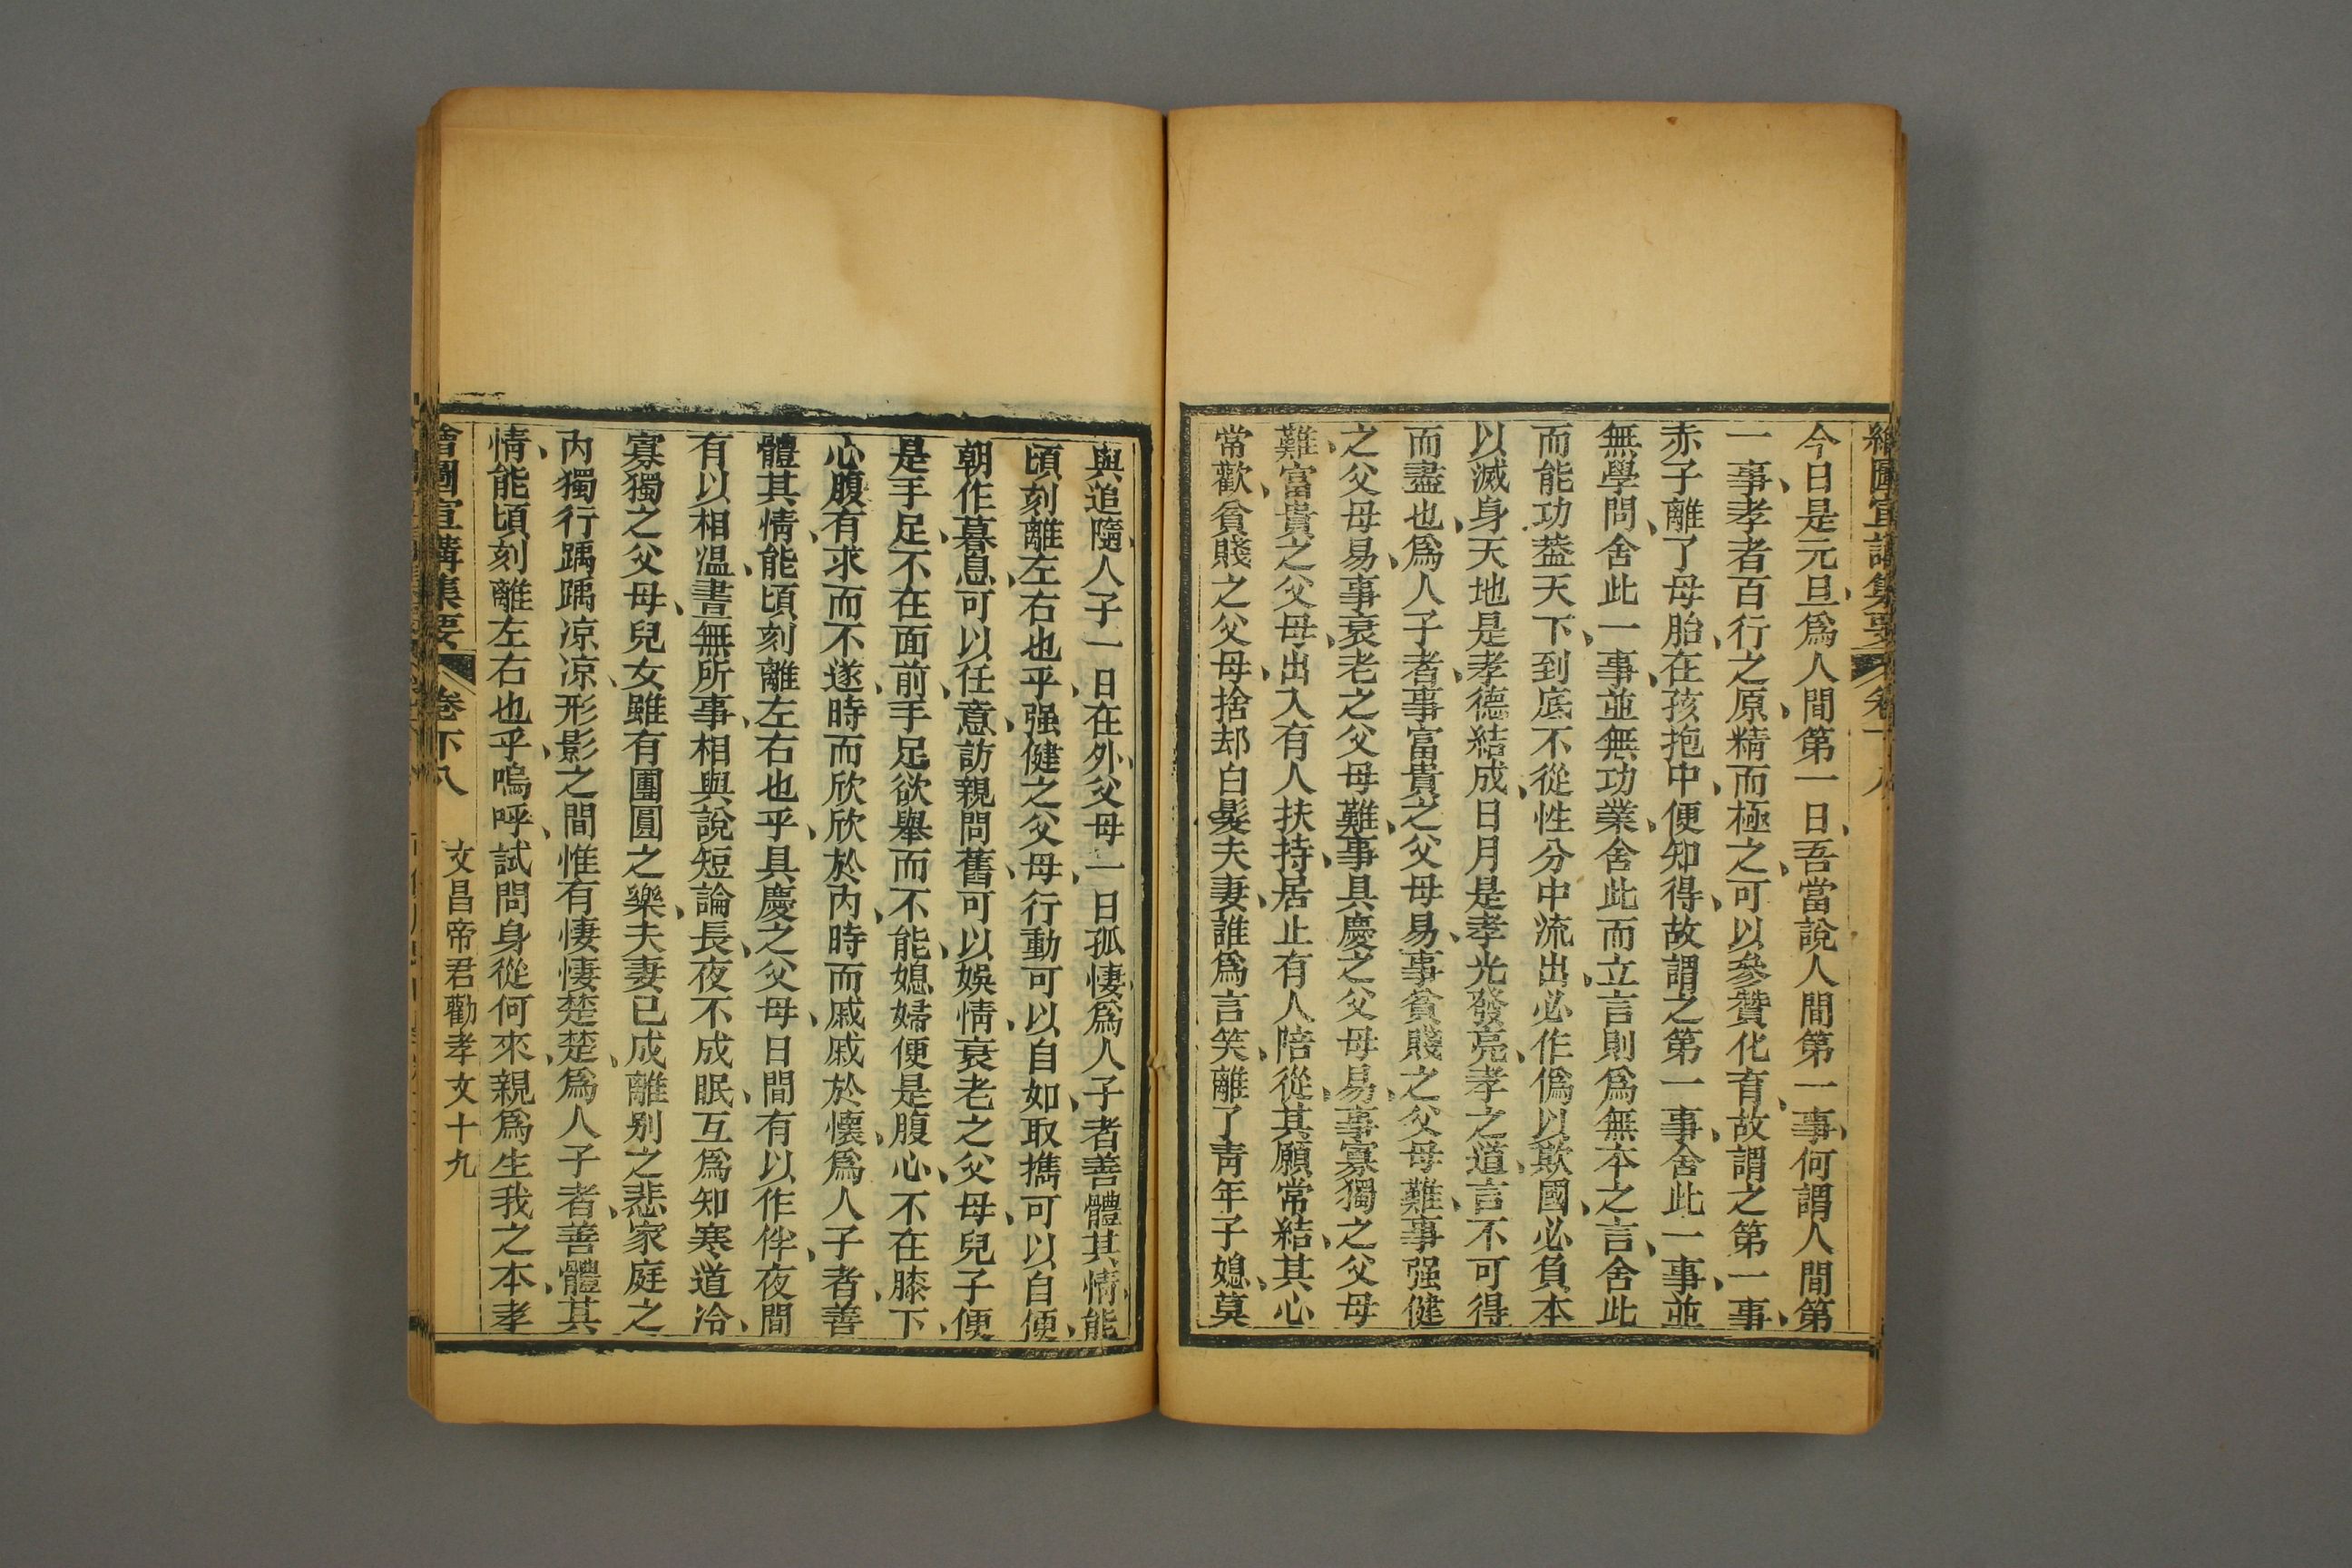 繪圖宣講集要 卷
今日是元旦、爲人間第一日、吾當說人間第一事、何謂人間第
一事、孝者百行之原、精而極之、可以參贊化育、故謂之第一事、
赤子離了母胎、在孩抱中、便知得、故謂之第一事、舍此一事、並
無學問、舍此一事、並無功業、舍此而立言、則爲無本之言、舍此
而能功葢天下、到底不從性分中流出、必作僞以欺國、必負本
以滅身、天地是孝德結成、日月是孝光發亮、孝之道、言不可得
而盡也、爲人子者、事富貴之父母易、事貧賤之父母難、事强健
之父母易、事衰老之父母難、事具慶之父母易、事寡獨之父母
難、富貴之父母、出入有人扶持、居止有人陪從、其願常結、其心
常歡、貧賤之父母、捨却白髮夫妻、誰爲言笑、離了靑年子媳、莫
與追隨、人子一日在外、父母一日孤悽、爲人子者、善體其情、能
頃刻離左右也乎、强健之父母、行動可以自如、取擕可以自便、
朝作暮息、可以任意、訪親問舊、可以娛情、衰老之父母、兒子便
是手足、不在面前、手足欲舉而不能、媳婦便是腹心、不在膝下、
心腹有求而不遂、時而欣欣於內、時而戚戚於懷、爲人子者、善
體其情、能頃刻離左右也乎、具慶之父母、日間有以作伴、夜間
有以相溫、晝無所事、相與說短論長、夜不成眠、互爲知寒道冷、
寡獨之父母、兒女雖有團圓之樂、夫妻已成離别之悲、家庭之
內、獨行踽踽凉凉、形影之間、惟有悽悽楚楚、爲人子者、善體其
情、能頃刻離左右也乎、嗚呼、試問身從何來、親爲生我之本、孝
繪圖宣講集要 卷下八 文昌帝君勸孝文十九